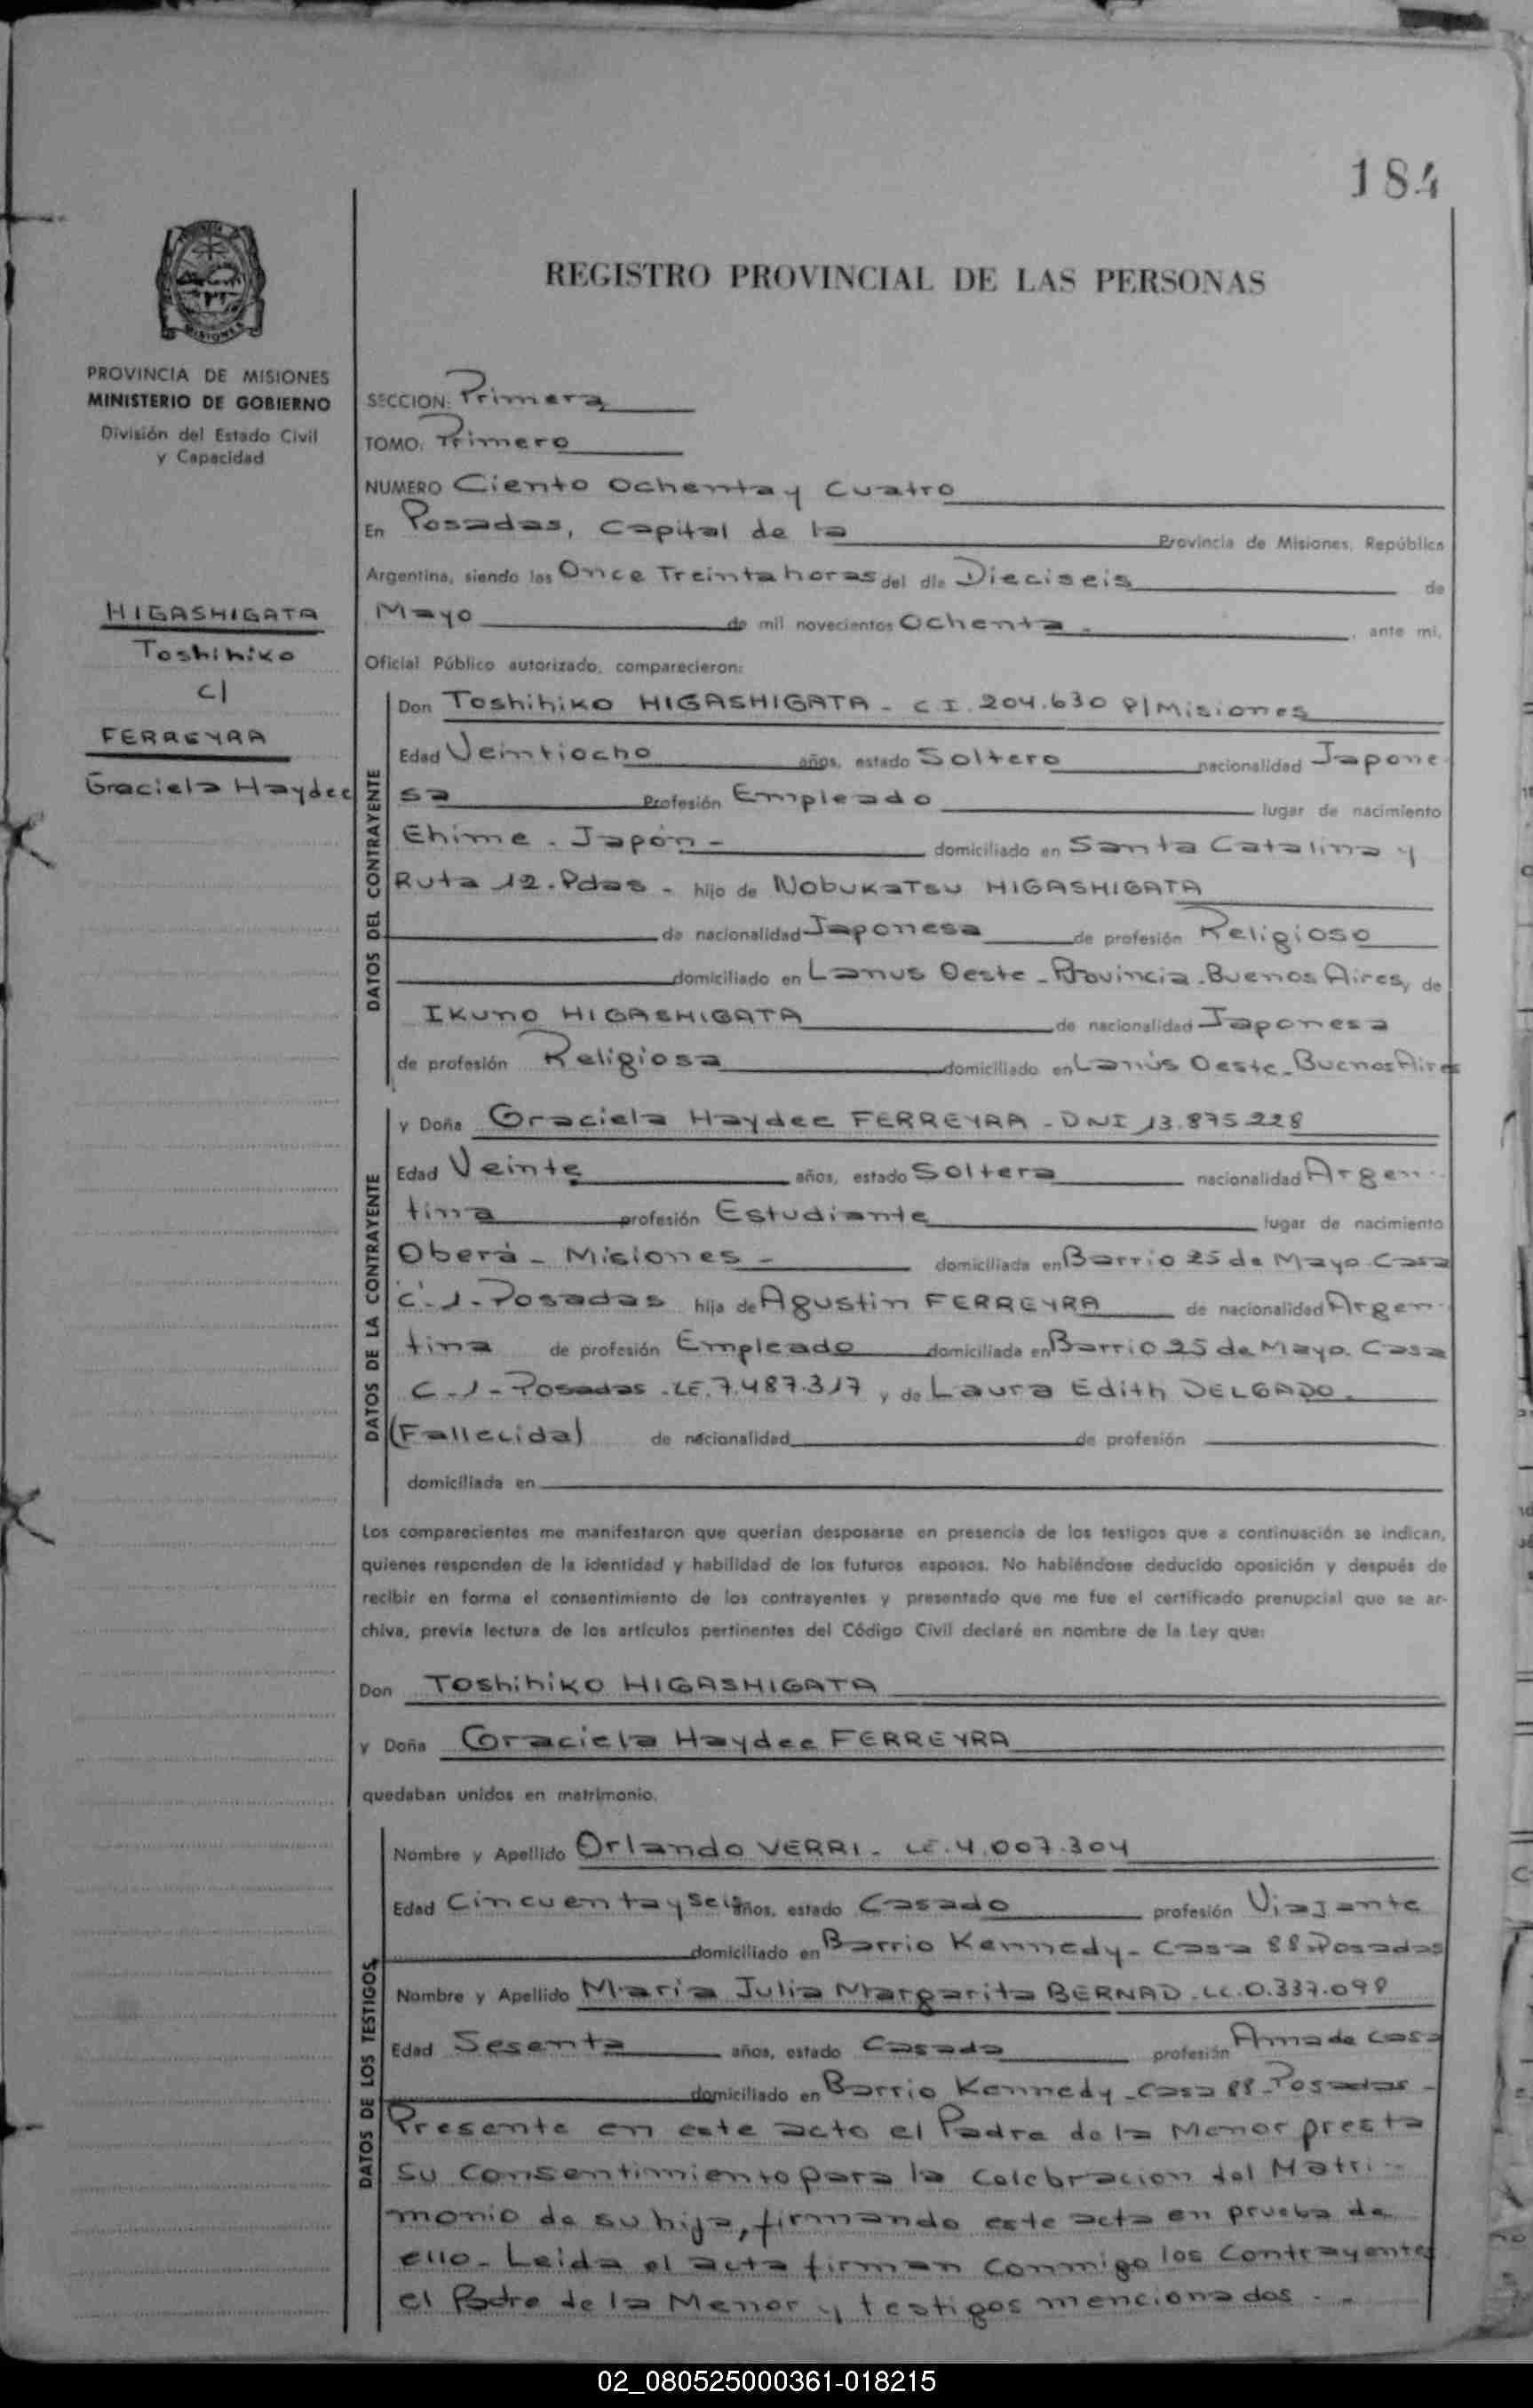 184
REGISTRO PROVINCIAL DE LAS PERSONAS
MISIONES
PROVINCIA DE MISIONES
MINISTERIO DE GOBIERNO
División del Estado Civil
y Capacidad
HIGASHIGATA
Toshihiko
c/
FERREYRA
Graciela Haydee
SECCION: Primera
TOMO: Primero
NUMERO Ciento Ochenta y Cuatro
En Posadas, Capital de la Provincia de Misiones, República
Argentina, siendo las Once Treinta horas del día Dieciseis de
Mayo de mil novecientos Ochenta - , ante mi,
Oficial Público autorizado, comparecieron:
DATOS DEL CONTRAYENTE
Don Toshihiko HIGASHIGATA - C.I. 204.630 P/Misiones
Edad Veintiocho años, estado Soltero nacionalidad Japone-
sa Profesión Empleado lugar de nacimiento
Ehime - Japón - domiciliado en Santa Catalina y
Ruta 12 - Pdas - hijo de NobukaTsu HIGASHIGATA
de nacionalidad Japonesa de profesión Religioso
domiciliado en Lanus Oeste - Provincia - Buenos Aires, de
Ikuno HIGASHIGATA de nacionalidad Japonesa
de profesión Religiosa domiciliado en Lanús Oeste - Buenos Aires
DATOS DE LA CONTRAYENTE
y Doña Graciela Haydee FERREYRA - DNI 13.875.228
Edad Veinte años, estado Soltera nacionalidad Argen-
tina profesión Estudiante lugar de nacimiento
Oberá - Misiones - domiciliada en Barrio 25 de Mayo Casa
C-1 - Posadas hija de Agustin FERREYRA de nacionalidad Argen-
tina de profesión Empleado domiciliada en Barrio 25 de Mayo. Casa
C-1 - Posadas - LE. 7.487.317 y de Laura Edith DELGADO.
(Fallecida) de nacionalidad de profesión
domiciliada en
Los comparecientes me manifestaron que querían desposarse en presencia de los testigos que a continuación se indican,
quienes responden de la identidad y habilidad de los futuros esposos. No habiéndose deducido oposición y después de
recibir en forma el consentimiento de los contrayentes y presentado que me fue el certificado prenupcial que se ar-
chiva, previa lectura de los artículos pertinentes del Código Civil declaré en nombre de la Ley que:
Don Toshihiko HIGASHIGATA
y Doña Graciela Haydee FERREYRA
quedaban unidos en matrimonio.
DATOS DE LOS TESTIGOS
Nombre y Apellido Orlando VERRI - LE. 4.007.304
Edad Cincuenta y Seis años, estado Casado profesión Viajante
domiciliado en Barrio Kennedy - Casa 88 - Posadas
Nombre y Apellido Maria Julia Margarita BERNAD - LC. 0.337.098
Edad Sesenta años, estado Casada profesión Ama de Casa
domiciliado en Barrio Kennedy - Casa 88 - Posadas -
Presente en este acto el Padre de la Menor presta
su consentimiento para la celebracion del Matri-
monio de su hija, firmando este acta en prueba de
ello - Leida el acta firman conmigo los Contrayentes
el Padre de la Menor y testigos mencionados . -
02_080525000361-018215